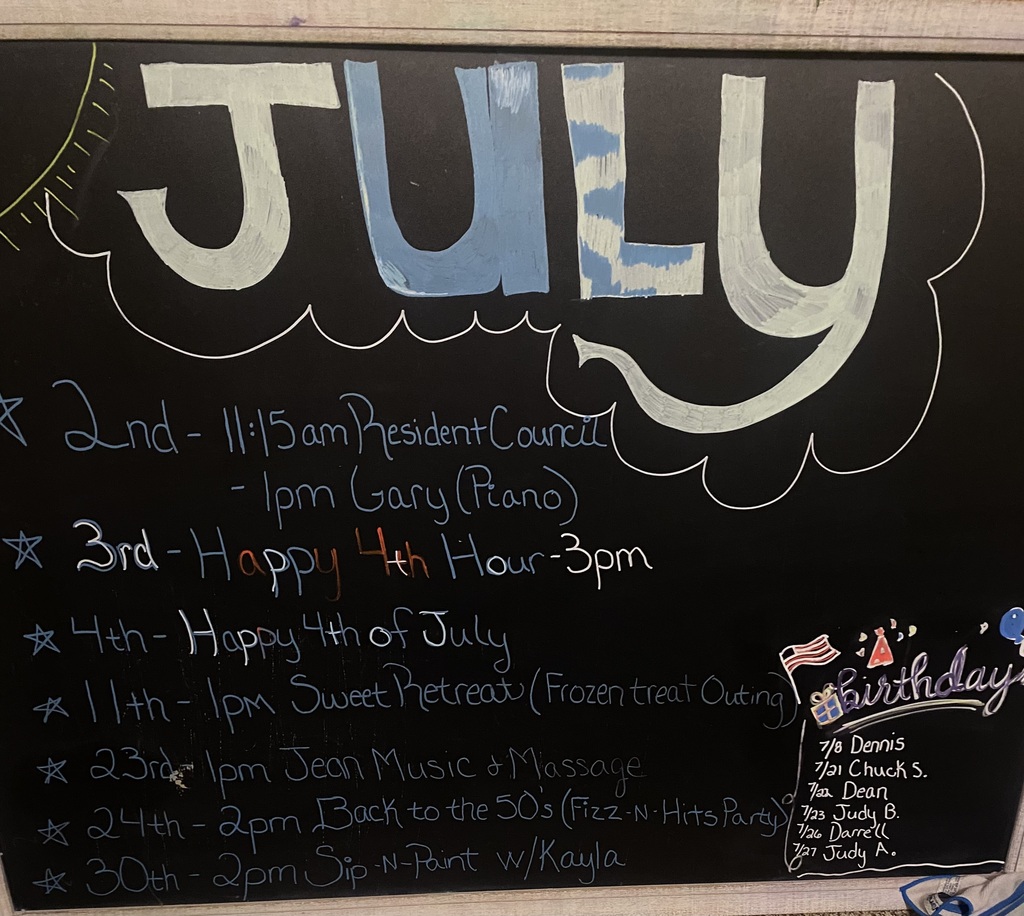 JULY
2nd - 11:15am Resident Council
- 1pm Gary (Piano)
3rd - Happy 4th Hour - 3pm
4th - Happy 4th of July
11th - 1pm Sweet Retreat (Frozen treat Outing)
23rd - 1pm Jean Music & Massage
24th - 2pm Back to the 50's (Fizz-N-Hits Party)
30th - 2pm Sip-N-Paint w/Kayla
birthdays
7/8 Dennis
7/21 Chuck S.
7/22 Dean
7/23 Judy B.
7/26 Darrell
7/27 Judy A.